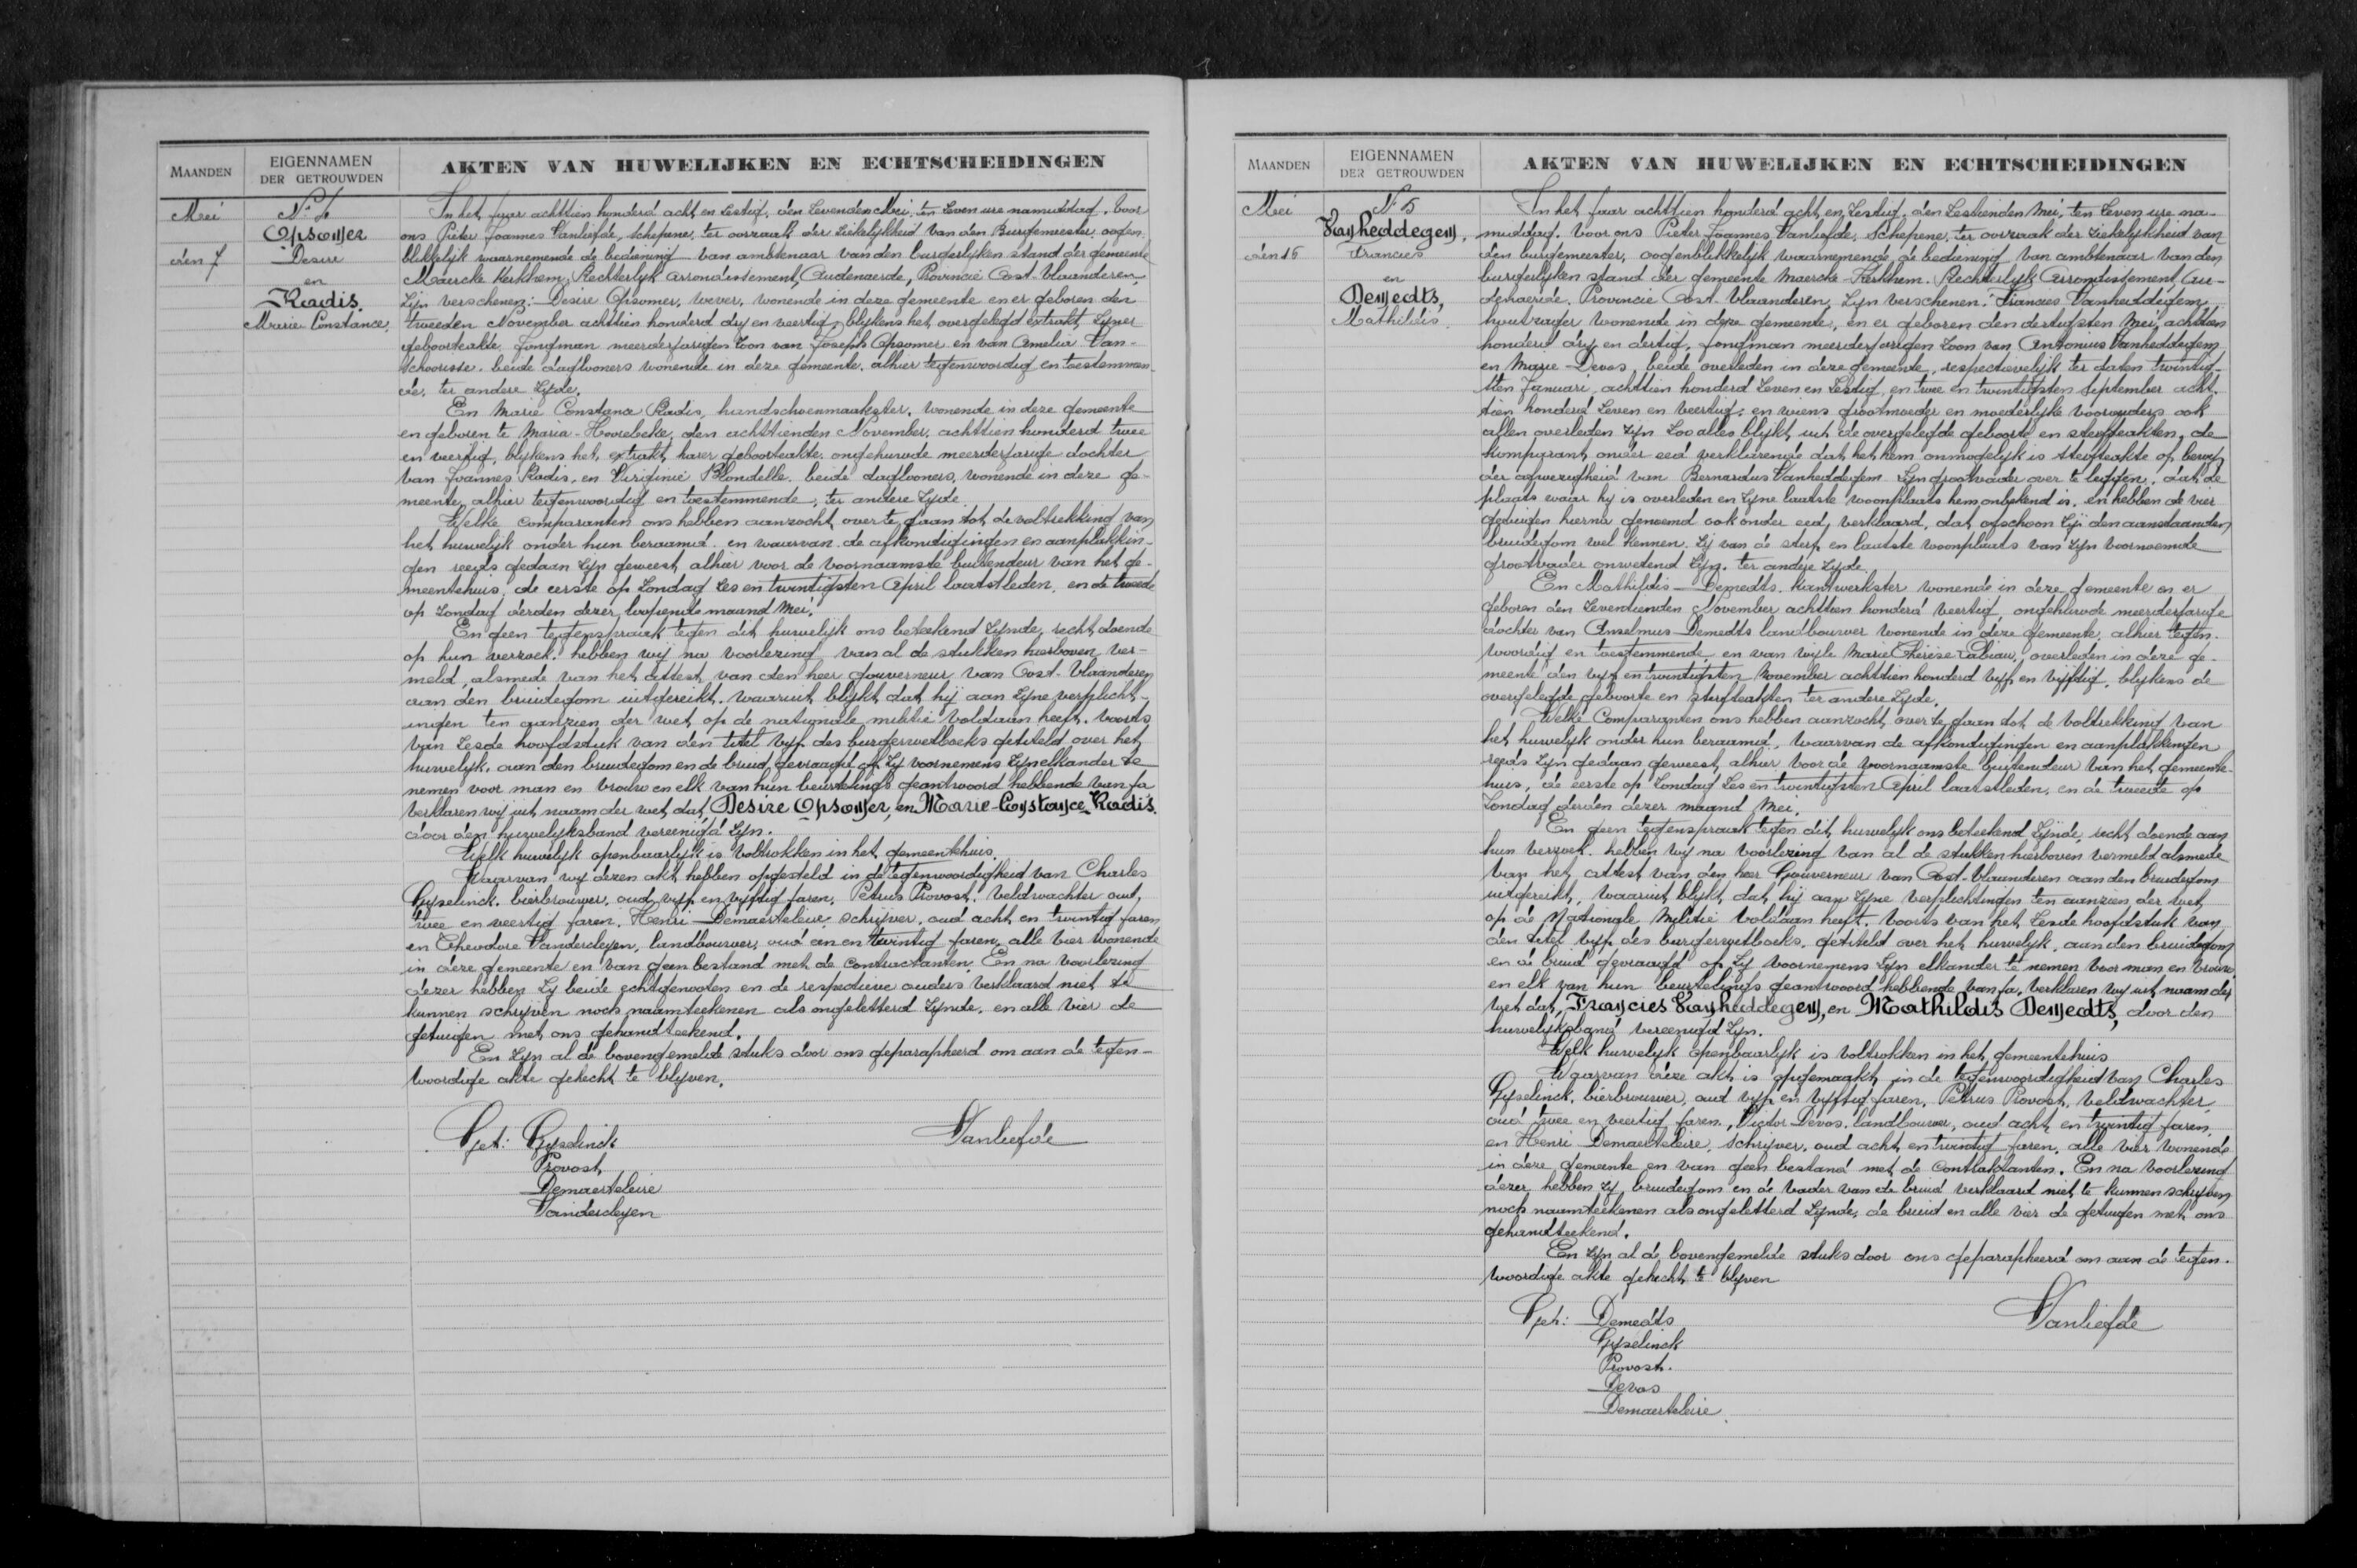 MAANDEN
EIGENNAMEN
DER GETROUWDEN
AKTEN VAN HUWELIJKEN EN ECHTSCHEIDINGEN
Mei
den 7
N. 4
Opsomer
Desire
en
Radis.
Marie Constance.
In het jaar achttien honderd acht en zestig, den zevenden Mei, ten zeven ure namiddag. Voor
ons Pieter Joannes Vanliefde, schepene, ter oorzaak der ziekelijkheid van den Burgemeester, oogen
blikkelijk waarnemende de bediening van ambtenaar van den burgerlijken stand der gemeente
Maercke Kerkhem, Rechterlyk arrondissement, Audenaerde, Provincie Oost-Vlaanderen,
Zijn verschenen: Desire Opsomer, wever, wonende in deze gemeente en er geboren den
tweeden November achttien honderd dry en veertig, blijkens het overgelegd extrakt zijner
geboorteakte, jongman meerderjarigen zoon van Joseph Opsomer en van Amelia Van-
schoorisse, beide dagloners wonende in deze gemeente, alhier tegenwoordig en toestemmen
de, ter andere zyde.
En Marie Constance Radis, handschoenmaakster, wonende in deze gemeente
en geboren te Maria-Hoorebeke, den achttienden November, achttien honderd twee
en veertig, blijkens het extrakt harer geboorteakte, ongehuwde meerderjarige dochter
van Joannes Radis, en Virginie Blondelle, beide dagloners, wonende in deze ge-
meente, alhier tegenwoordig en toestemmende, ter andere zyde.
Welke comparanten ons hebben aanzocht over te gaan tot de voltrekking van
het huwelijk onder hun beraamd en waarvan de afkondigingen en aanplakkin-
gen reeds gedaan zijn geweest, alhier voor de voornaamste buitendeur van het ge-
meentehuis, de eerste op Zondag zes en twintigsten April laatstleden, en de tweede
op Zondag derden dezer loopende maand Mei.
En geen tegenspraak tegen dit huwelijk ons beteekend zijnde, recht doende
op hun verzoek, hebben wij na voorlezing van al de stukken hierboven ver-
meld, alsmede van het attest van den heer Gouverneur van Oost-Vlaanderen
aan den bruidegom uitgereikt, waaruit blijkt dat hij aan zijne verplicht-
ingen ten aanzien der wet op de nationale militie voldaan heeft, voorts
van zesde hoofdstuk van den titel vyf des burgerwetboeks getiteld over het
huwelijk, aan den bruidegom en de bruid gevraagd of zij voornemens zijn elkander te
nemen voor man en vrouw en elk van hun beurtelings geantwoord hebbende van ja
verklaren wij uit naam der wet dat, Desire Opsomer, en Marie-Constance Radis.
door den huwelijksband vereenigd zijn.
Welk huwelijk openbaarlijk is voltrokken in het gemeentehuis.
Waarvan wij dezen akt hebben opgesteld in de tegenwoordigheid van Charles
Gyselinck, bierbrouwer, oud vijf en vijftig jaren, Petrus Provost, veldwachter oud,
twee en veertig jaren. Henri Demaerteleire, schrijver, oud acht en twintig jaren
en Theodore Vandercleyen, landbouwer, oud een en twintig jaren, alle vier wonende
in deze gemeente en van geen bestand met de contractanten. En na voorlezing
dezer hebben zij beide echtgenooten en de respectieve ouders verklaard niet te
kunnen schrijven noch naamteekenen als ongeletterd zijnde, en alle vier de
getuigen met ons gehandteekend.
En zijn al de bovengemelde stuks door ons geparapheerd om aan de tegen-
woordige akte gehecht te blyven.
Get: Gyselinck
Vanliefde
Provost
Demaerteleire
Vandercleyen
MAANDEN
EIGENNAMEN
DER GETROUWDEN
AKTEN VAN HUWELIJKEN EN ECHTSCHEIDINGEN
Mei
den 16
N. 5
Vanheddegem,
Francies
en
Demedts,
Mathildis.
In het jaar achttien honderd acht en zestig, den zestienden Mei, ten zeven ure na-
middag. Voor ons Pieter Joannes Vanliefde, Schepene, ter oorzaak der ziekelykheid van
den burgemeester, oogenblikkelijk waarnemende de bediening van ambtenaar van den
burgerlijken stand der gemeente Maercke-Kerkhem. Rechterlyk Arrondissement Au-
denaerde, Provincie Oost-Vlaanderen, zyn verschenen: Francies Vanheddegem
houtzager wonende in deze gemeente, en er geboren den dertigsten Mei, achttien
honderd dry en dertig, jongman meerderjarigen zoon van Antonius Vanheddegem
en Marie Devos, beide overleden in deze gemeente, respectievelijk ter daten twintig-
sten Januari, achttien honderd zeven en zestig, en twee en twintigsten September acht.
tien honderd zeven en veertig, en wiens grootmoeder en moederlyke voorouders ook
allen overleden zyn zoo alles blijkt uit de overgelegde geboorte en sterfteakten, de
komparant onder eed verklarende dat het hem onmogelijk is sterfteakte op bewys
der afwezigheid van Bernardus Vanheddegem zyn grootvader over te leggen, dat de
plaats waar hy is overleden en zyne laatste woonplaats hem onbekend is, en hebben de vier
getuigen hierna genoemd ook onder eed, verklaard, dat ofschoon zij den aanstaanden
bruidegom wel kennen, zij van de sterf en laatste woonplaats van zyn voornoemde
grootvader onwetend zyn. ter andere zyde.
En Mathildis Demedts, kantwerkster wonende in deze gemeente en er
geboren den zeventienden November achttien honderd veertig, ongehuwde meerderjarige
dochter van Anselmus Demedts landbouwer wonende in deze gemeente, alhier tegen.
woordig en toestemmende, en van wyle Marie Thérèse Labiau, overleden in deze ge-
meente den vyf en twintigsten November achttien honderd vyf en vijftig, blijkens de
overgelegde geboorte en sterfteakten ter andere zyde.
Welke Comparanten ons hebben aanzocht over te gaan tot de voltrekking van
het huwelijk onder hun beraamd, waarvan de afkondigingen en aanplakkingen
reeds zyn gedaan geweest, alhier voor de voornaamste buitendeur van het gemeente-
huis, de eerste op Zondag zes en twintigsten April laatstleden, en de tweede op
Zondag derden dezer maand Mei.
En geen tegenspraak tegen dit huwelijk ons beteekend zijnde, recht doende aan
hun verzoek, hebben wij na voorlezing van al de stukken hierboven vermeld alsmede
van het attest van den heer Gouverneur van Oost-Vlaanderen aan den bruidegom
uitgereikt, waaruit blijkt, dat hij aan zijne verplichtingen ten aanzien der wet
op de Nationale Militie voldaan heeft. Voorts van het zesde hoofdstuk van
den titel vyf des burgerwetboeks, getiteld over het huwelijk, aan den bruidegom
en de bruid gevraagd op zy voornemens zyn elkander te nemen voor man en vrouw,
en elk van hun beurtelings geantwoord hebbende van ja, verklaren wy uit naam der
wet dat, Francies Vanheddegem, en Mathildis Demedts, door den
huwelijksband vereenigd zyn.
Welk huwelijk openbaarlyk is voltrokken in het gemeentehuis
Waarvan deze akt is opgemaakt in de tegenwoordigheid van Charles
Gyselinck, bierbrouwer, oud vyf en vyftig jaren, Petrus Provost, veldwachter,
oud twee en veertig jaren, Victor Devos, landbouwer, oud acht en twintig jaren
en Henri Demaerteleire, schrijver, oud acht en twintig jaren, alle vier wonende
in deze gemeente en van geen bestand met de Contraktanten. En na voorlezing
dezer hebben zy bruidegom en de vader van de bruid verklaard niet te kunnen schryven
noch naamteekenen als ongeletterd zynde, de bruid en alle vier de getuigen met ons
gehandteekend.
En zyn al de bovengemelde stuks door ons geparapheerd om aan de tegen.
woordige akte gehecht te blyven
Get: Demedts
Vanliefde
Gyselinck
Provost.
Devos
Demaerteleire